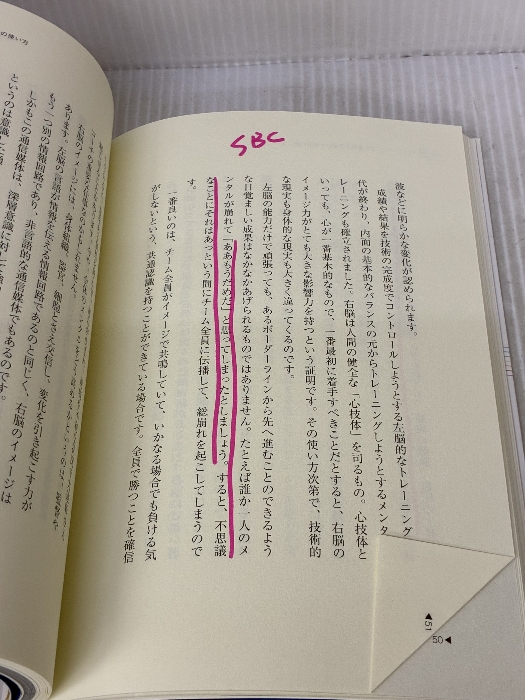 SBC
波などに明らかな変化が認められます。
成績や結果を技術の完成度でコントロールしようとする左脳的なトレーニング
代が終わり、内面の基本的なバランスの元からトレーニングしようとするメンタ
レーニングも確立されました。右脳は人間の健全な「心技体」を司るもの。心技体と
いっても、心が一番基本的なもので、一番最初に着手すべきことだとすると、右脳の
イメージ力がとても大きな影響力を持つという証明です。その使い方次第で、技術的
な現実も身体的な現実も大きく違ってくるのです。
左脳の能力だけで頑張っても、あるボーダーラインから先へ進むことのできるよう
な目覚ましい成果はなかなかあげられるものではありません。たとえば誰か一人のメ
ンタルが崩れて「ああもうだめだ」と思ってしまったとしましょう。すると、不思議
なことにそれはあっという間にチーム全員に伝播して、総崩れを起こしてしまうので
す。
一番良いのは、チーム全員がイメージで共鳴していて、いかなる場合でも負ける気
がしないという、共通認識を持つことができている場合です。全員で勝つことを確信
50
51
の使い方
あります。左脳の言語が情報を伝える情報回路で
もう一つ別の情報回路であり、非言語的な通信媒体で
しかもこの通信媒体は、深層意識に対して
であるのと同じく、右脳のイメージは
通信媒体でもあるのです。